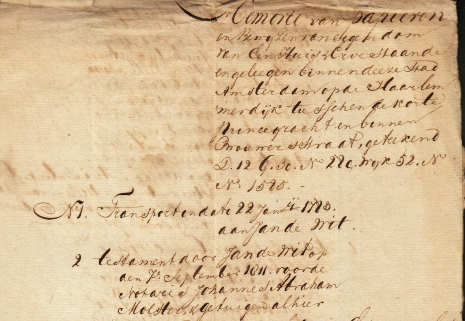 Memorie van Papieren
en Bewyzen van eigendom
van Een Huis & Erve staande
en geleegen binnen deeze Stad
Amsterdam op de Haarlem
merdijk tusschen de korte
Princegracht en binnen
Brouwersstraat, getekend
D. 12 G. 30. N° 220. wyk 52. N
N° 1515. -
N 1. Transport in dato 22 Janij
aan Jan de Wit.
2 testament door Jan de Wit op
den 7e September 1811. voor de
Notaris Johannes Abraham
Molster & getuigen alhier